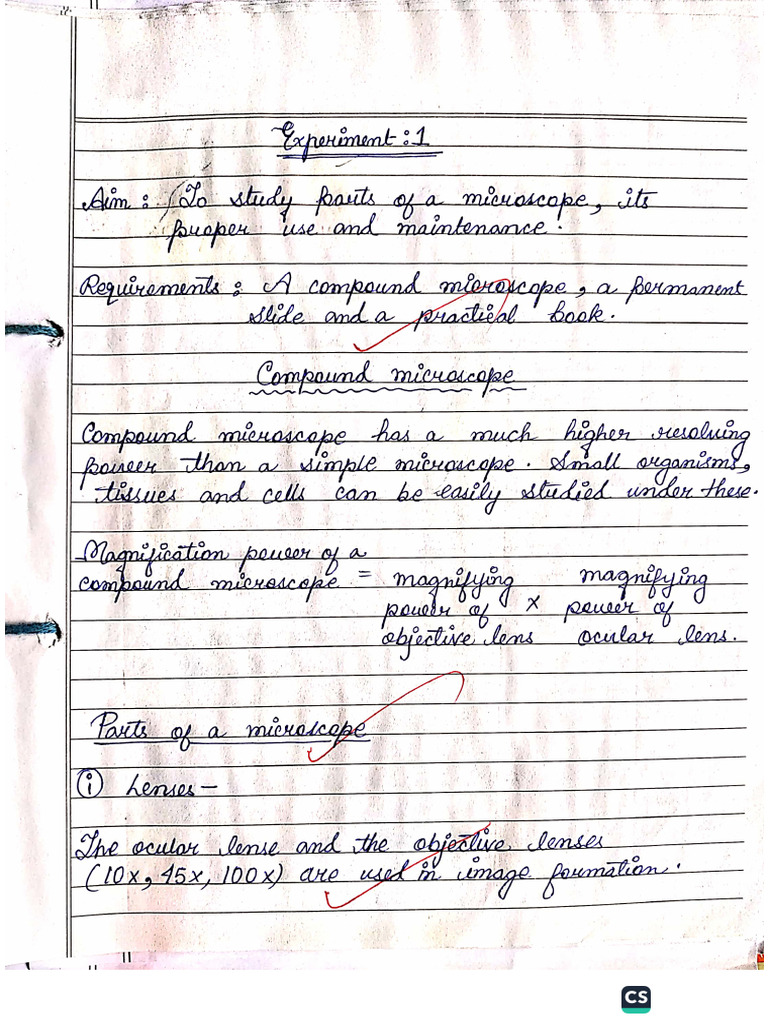 Experiment:1
Aim: To study parts of a microscope, its
proper use and maintenance.
Requirements: A compound microscope, a permanent
slide and a practical book.
Compound microscope
Compound microscope has a much higher resolving
power than a simple microscope. Small organisms,
tissues and cells can be easily studied under these.
Magnification power of a
compound microscope = magnifying magnifying
power of x power of
objective lens ocular lens.
Parts of a microscope
(i) Lenses -
The ocular lense and the objective lenses
(10x, 45x, 100x) are used in image formation.
CS